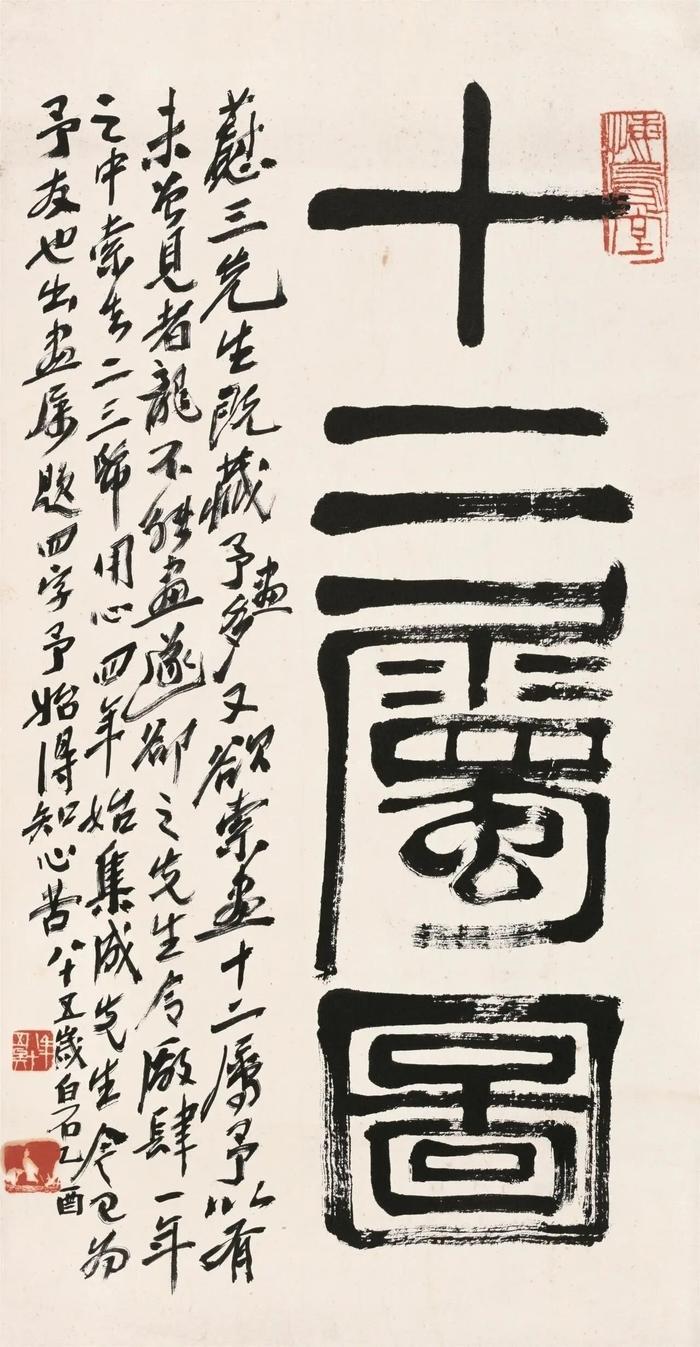 十二屬圖
三先生既藏予畫多又欲索畫十二屬予以有
未曾見者龍不能畫遂卻之先生令廠肆一年
之中索去二三帋用心四年始集成先生今已為
予友也出畫屬題四字予始得知心苦八十五歲白石乙酉
悔烏堂